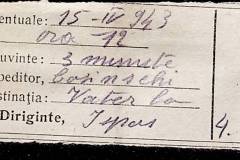 entuale: 15-IV 943
ora 12
uvinte: 3 minute
peditor, Cosinschi
stinaţia: Vater la
Diriginte,
4.